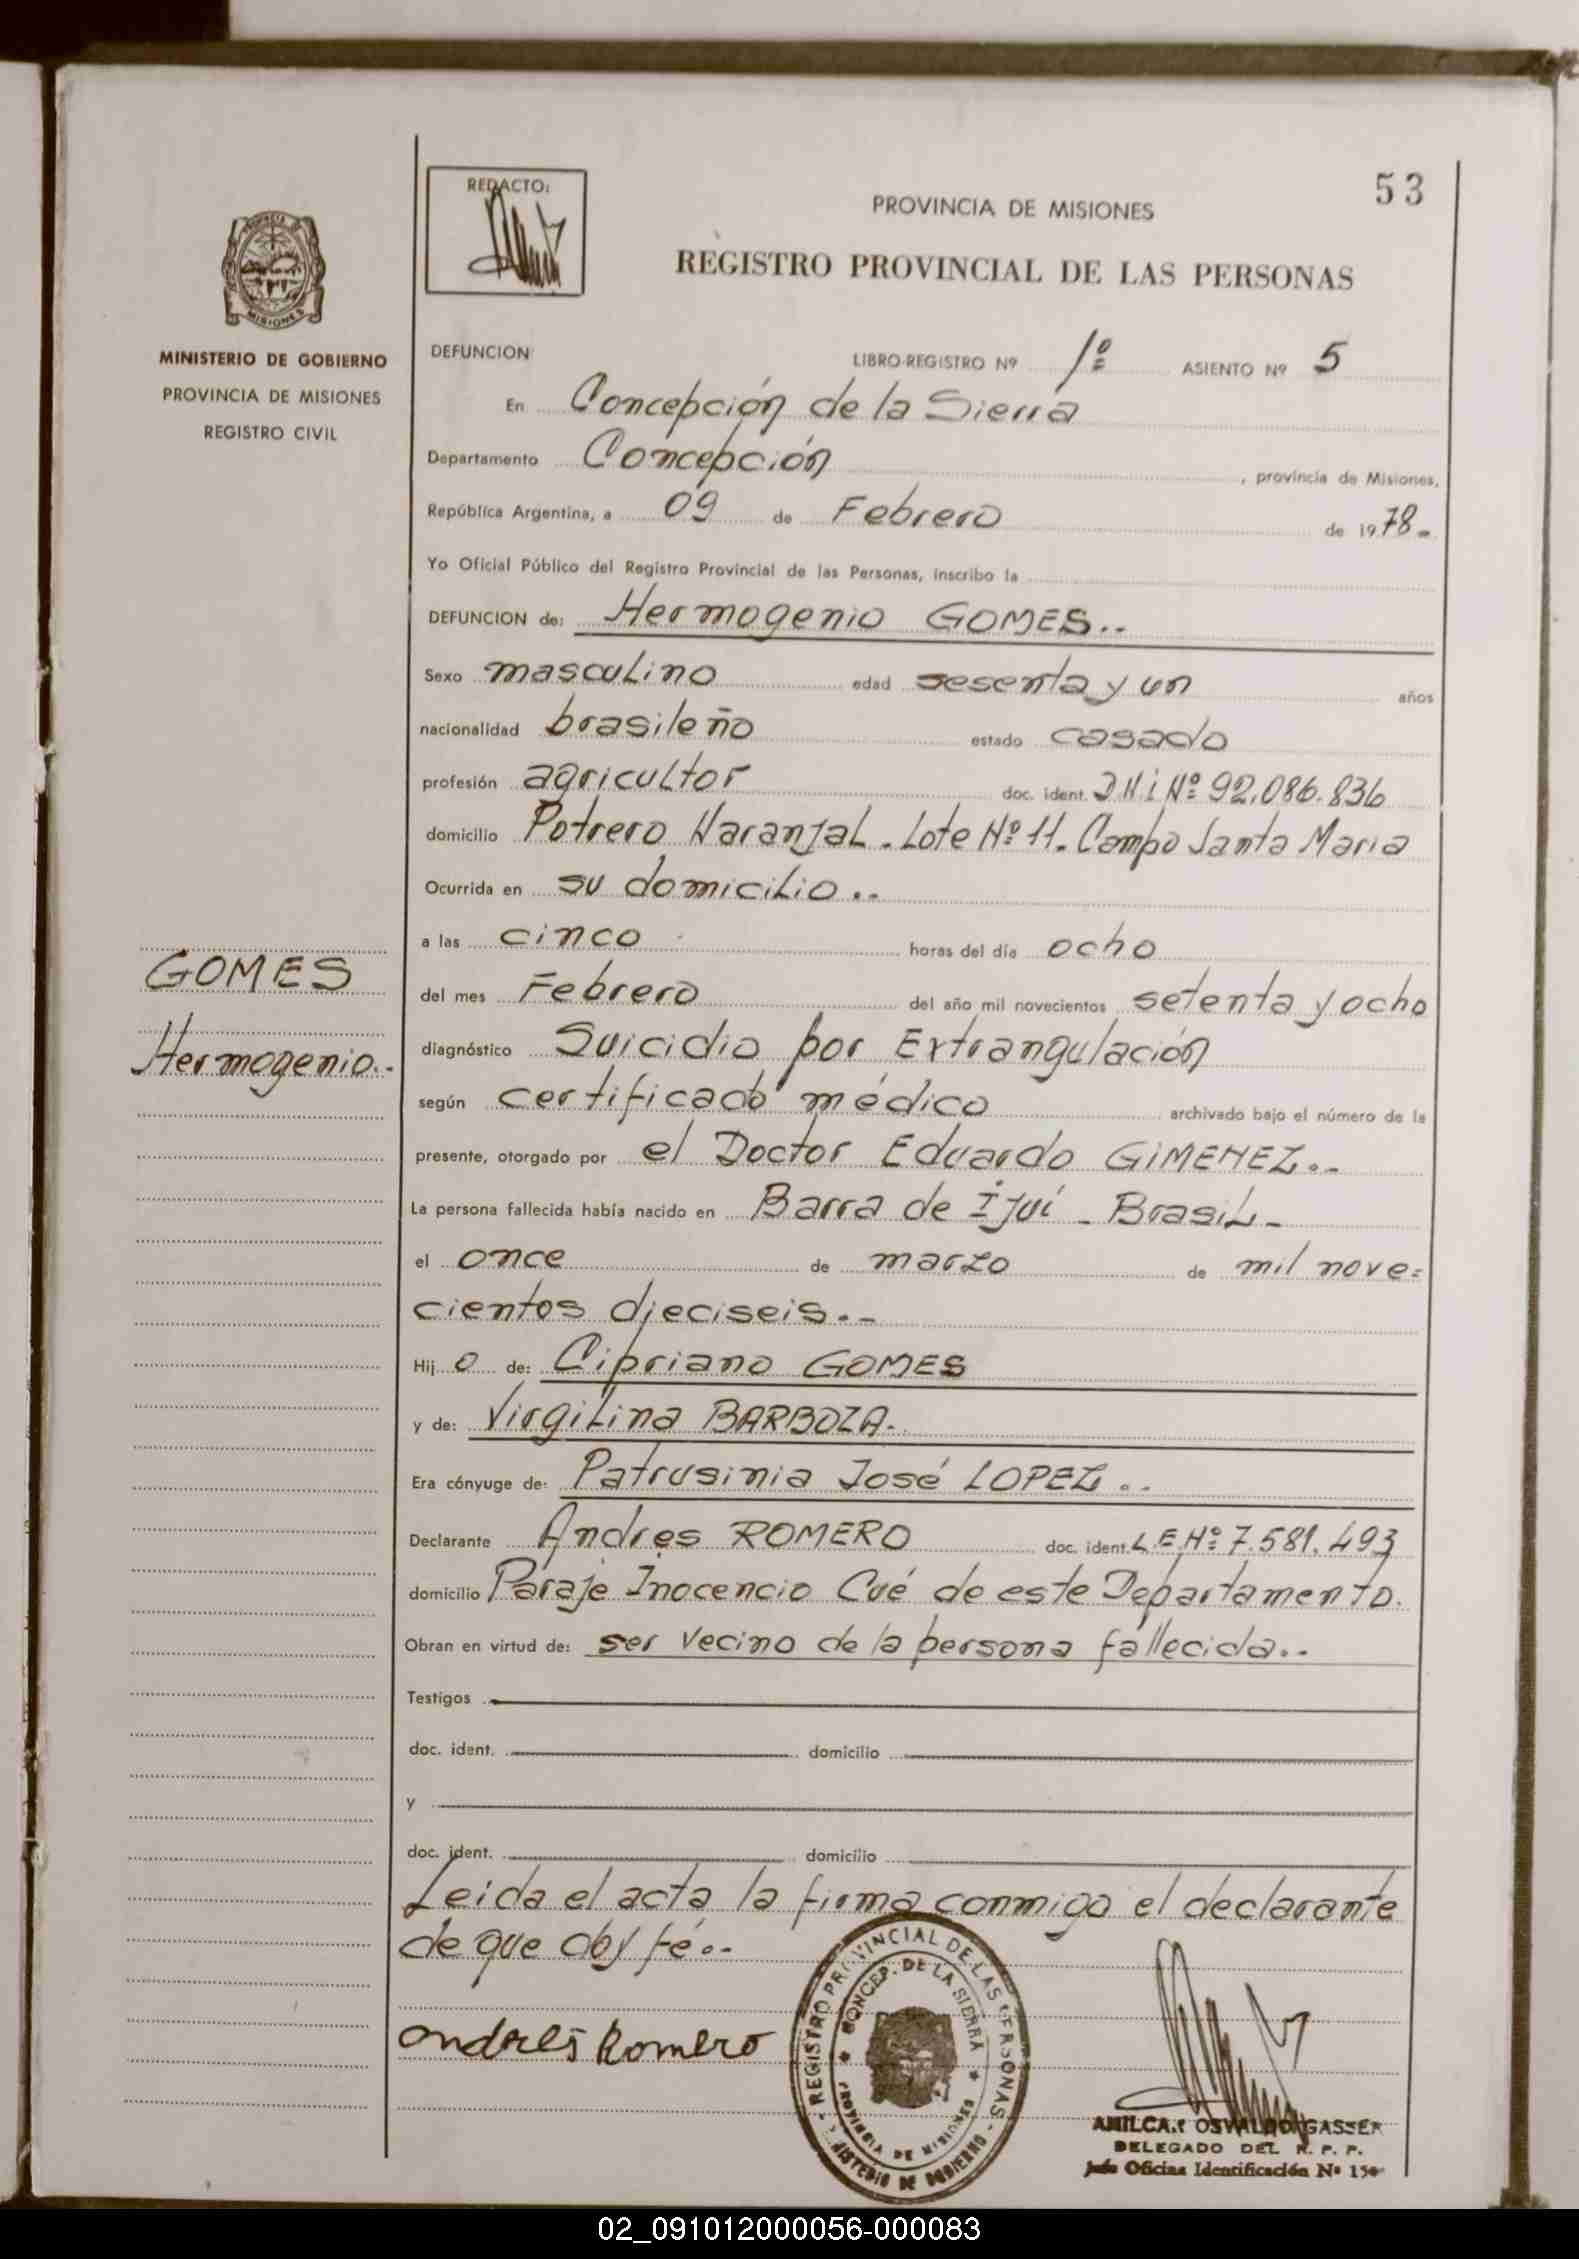 53
REDACTO:
PROVINCIA DE MISIONES
REGISTRO PROVINCIAL DE LAS PERSONAS
MISIONES
MINISTERIO DE GOBIERNO
PROVINCIA DE MISIONES
REGISTRO CIVIL
GOMES
Hermogenio..
DEFUNCION LIBRO-REGISTRO Nº 1º ASIENTO Nº 5
En Concepción de la Sierra
Departamento Concepción, provincia de Misiones,
República Argentina, a 09 de Febrero de 1978-
Yo Oficial Público del Registro Provincial de las Personas, inscribo la
DEFUNCION de: Hermogenio GOMES..
Sexo masculino edad sesenta y un años
nacionalidad brasileño estado casado
profesión agricultor doc. ident. DNi Nº 92.086.836
domicilio Potrero Naranjal. Lote Nº 11. Campo Santa Maria
Ocurrida en su domicilio..
a las cinco horas del día ocho
del mes Febrero del año mil novecientos setenta y ocho
diagnóstico Suicidio por Extrangulación
según certificado médico archivado bajo el número de la
presente, otorgado por el Doctor Eduardo GIMENEZ.-
La persona fallecida había nacido en Barra de Ijuí - Brasil-
el once de marzo de mil nove=
cientos dieciseis.-
Hijo de: Cipriano GOMES
y de: Virgilina BARBOZA.
Era cónyuge de: Patrusinia José LOPEZ..
Declarante Andres ROMERO doc. ident. L.E.Nº 7.581.493
domicilio Paraje Inocencio Cué de este Departamento.
Obran en virtud de: ser vecino de la persona fallecida..
Testigos
doc. ident. domicilio
y
doc. ident. domicilio
Leida el acta la firma conmigo el declarante
de que doy fé.-
andres Romero
REGISTRO PROVINCIAL DE LAS PERSONAS
CONCEP. DE LA SIERRA
PROVINCIA DE MISIONES
MINISTERIO DE GOBIERNO
AMILCAR OSVALDO GASSER
DELEGADO DEL R. P. P.
Jefe Oficina Identificación Nº 150
02_091012000056-000083